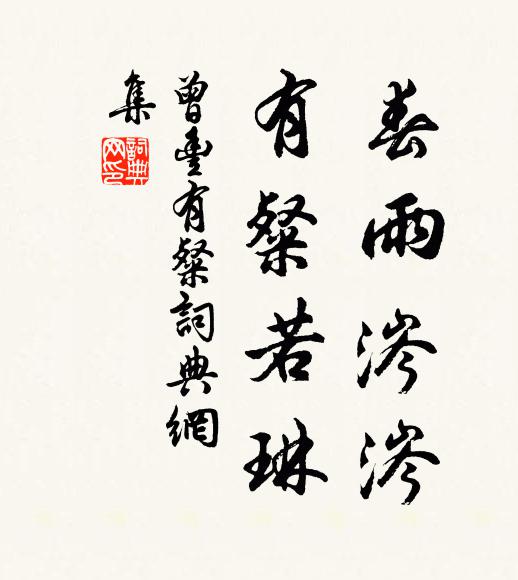 春雨涔涔
有粲若琳
曾豊有粲詞典網
集
詞典
网印